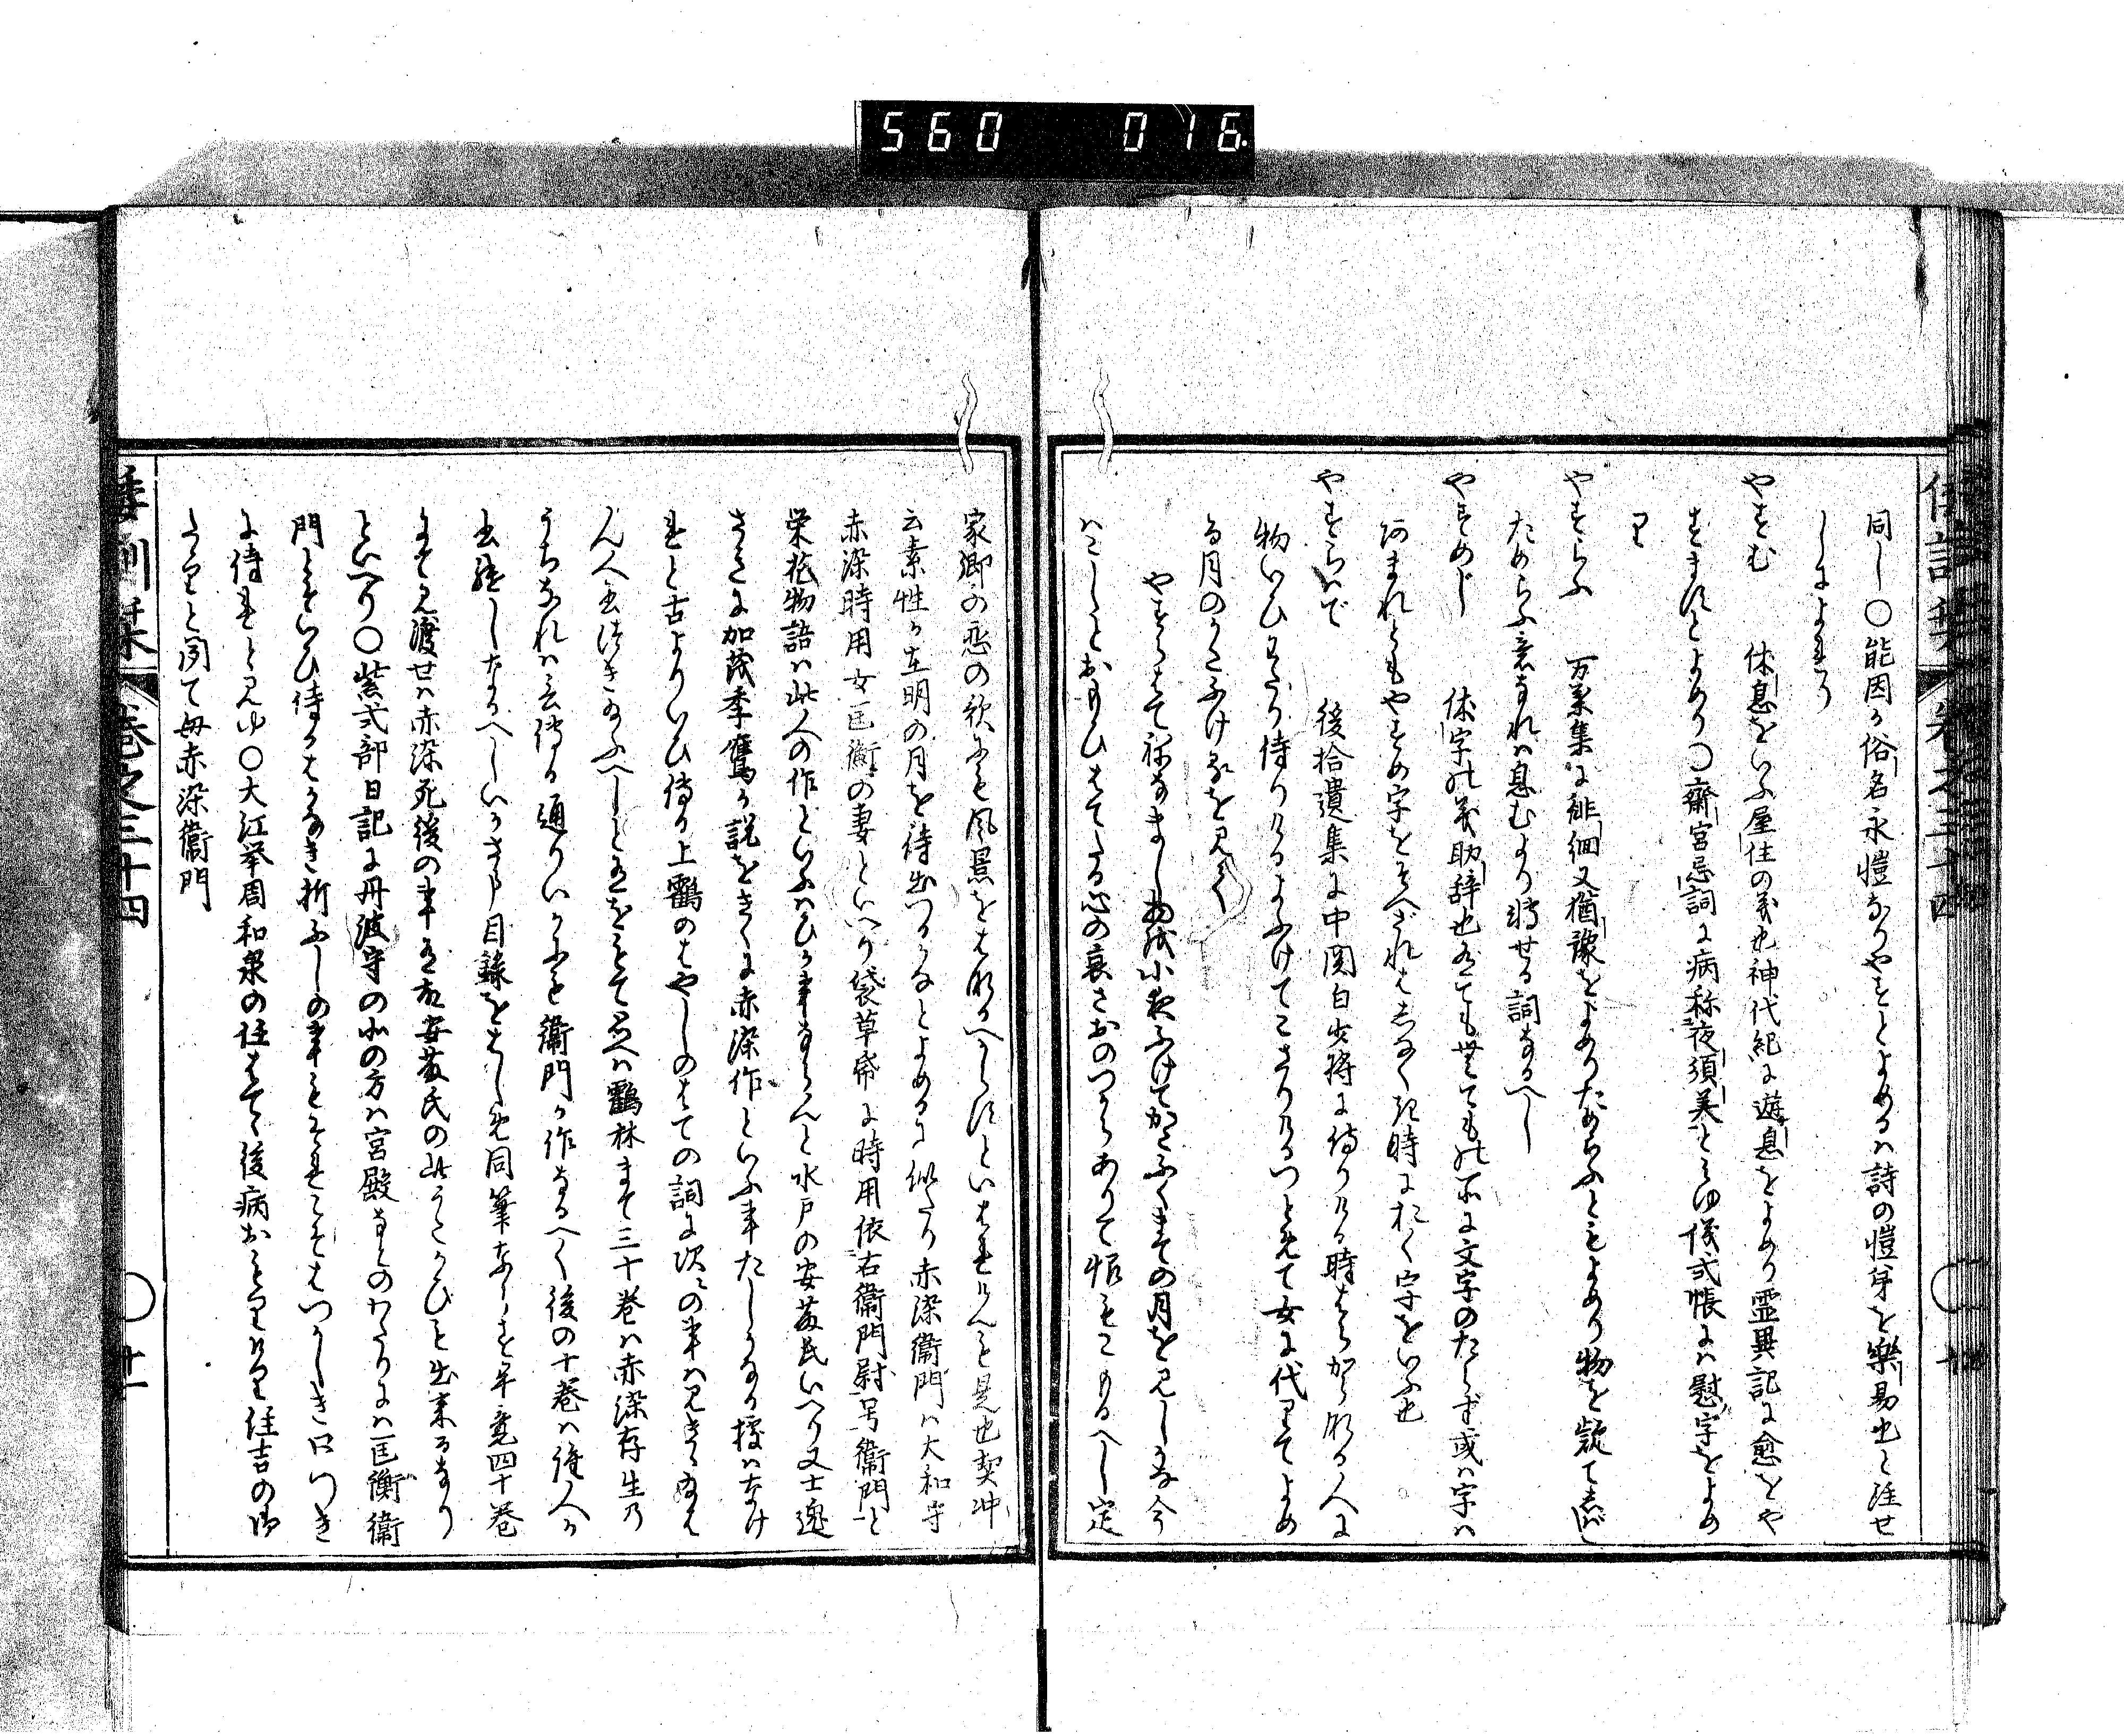 560 016
同し〇能因か俗名永愷なりやすとよめるハ詩の愷弟を樂易也と注せ
しによれり
やすむ 休息をいふ屋住の義也神代紀に遊息をよめり霊異記に愈をや
すますとよめり〇齋宮忌詞に病称夜須美とみゆ儀式帳にハ慰字をよめ
り
やすらふ 万葉集に徘徊又猶豫をよめりためらふともよめり物を疑てしばし
ためらふ意なれハ息むより轉せる詞なるへし
やすめじ 休字の義助辞也ありても無てもの所に文字のたらず或ハ字ハ
あまれともやすめ字をそへざれハあしく時におく字をいふ也
やすらハで 後拾遺集に中関白少将に侍りける時はらからなる人に
物いひわたり侍りけるよふけてこさりけるつとめて女に代りてよめ
る月のかたふけるを見て
やすらはてねなましものを小夜ふけてかたふくまての月を見しかな今
ハこしとおもひはてたる心の哀さおのつからありて恨もこもるへし定
家卿の恋の歌にも風景をはなるへからすといはれけんも是也契冲
云素性か在明の月を待出つるかなとよめるに似たり赤染衛門ハ大和守
赤染時用女匡衡の妻といへり袋草帋に時用依右衛門尉号衛門と
栄花物語ハ此人の作といふハひか事ならんと水戸の安藤氏いへり又士逸
さきに加茂季鷹か説をきくに赤染作といふ事たしかなる據ハなけ
れと古よりいひ傳る上鶴のはやしのはての詞に次々の事ハ見きゝ給は
ん人書つき給ふへしとあるをもて思へハ鶴林まて三十巻ハ赤染存生乃
うちなれハ言傳る通りいかにも衛門か作なるへく後の十巻ハ後人か
書継しなるへしいかさま目録をはしめ同筆ならは年竟四十巻
まて見渡せハ赤染死後の事あり故安藤氏の此うたかひも出来るなり
といへり〇紫式部日記に丹波守の北の方ハ宮殿なとのわたりにハ匡衡衛
門とそいひ侍るはかなき折ふしの事もそれこそはつかしき口つき
に侍れと見ゆ〇大江挙周和泉の任はてゝ後病おもりけり住吉の御
たゝりと聞て母赤染衛門
倭訓栞 巻之三十四 〇廿一